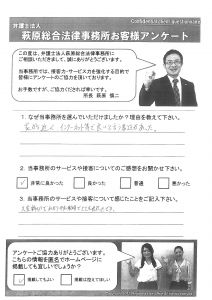 Confidential client questionnaire
弁護士法人
萩原総合法律事務所お客様アンケート
この度は、弁護士法人萩原総合法律事務所に
ご相談いただきまして、誠にありがとうございます。
当事務所では、接客力・サービス力を強化する目的で
皆様にアンケートのご協力を頂いております。
お手数ですが、ご協力くださればと幸いです。
所長 萩原 慎二
1. なぜ当事務所を選んでいただけましたか?理由を教えて下さい。
2. 当事務所のサービスや接客についてのご感想をお聞かせ下さい。
非常に良かった
良かった
普通
悪かった
3. 当事務所のサービスや接客について感じたことをご記入下さい。
アンケートご協力ありがとうございます。
こちらの情報を匿名でホームページに
掲載しても宜しいでしょうか?
掲載してもよい
掲載は控えてほしい